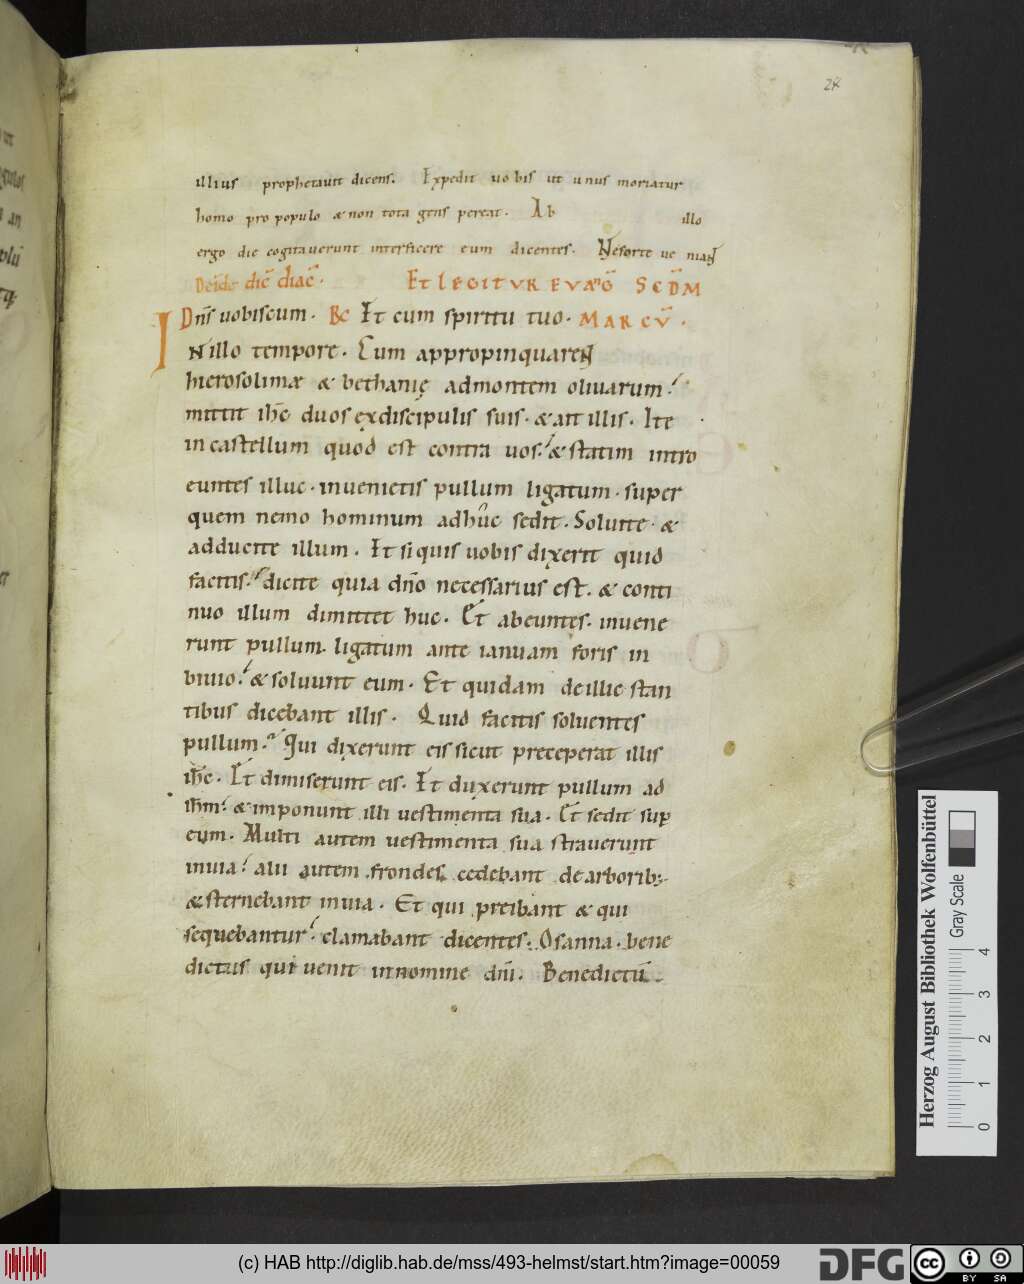 24
illius prophetauit dicens. Expedit uobis ut unus moriatur
homo pro populo & non tota gens pereat. Ab illo
ergo die cogitauerunt interficere eum dicentes. Neforte ue niant
Deide dic̄ diac̄. Et legitvr evāg̅ Scd̄m
Dn̄s uobiscum. Rc Et cum spiritu tuo. Marcv̄.
In illo tempore. Cum appropinquarent
hierosolimae & bethanię admontem oliuarum.
mittit ih̄c duos exdiscipulis suis. & ait illis. Ite
in castellum quod est contra uos. & statim intro
euntes illuc. inuenietis pullum ligatum. super
quem nemo hominum adhuc sedit. Soluite &
adducite illum. Et siquis uobis dixerit quid
facitis. dicite quia dn̄o necessarius est. & conti
nuo illum dimittet huc. Et abeuntes. inuene
runt pullum ligatum ante ianuam foris in
biuio. & soluunt eum. Et quidam deillic stan
tibus dicebant illis. Quid facitis soluentes
pullum. Qui dixerunt eis sicut preceperat illis
ih̄c. Et dimiserunt eis. Et duxerunt pullum ad
ih̄m. & imponunt illi uestimenta sua. Et sedit sup̄
eum. Multi autem uestimenta sua strauerunt
inuia. alii autem frondes cedebant dearborib;
& sternebant inuia. Et qui preibant & qui
sequebantur. clamabant dicentes. Osanna. bene
dictus qui uenit innomine dn̄i. Benedictū
Herzog August Bibliothek Wolfenbüttel
Gray Scale
0 1 2 3 4
(c) HAB http://diglib.hab.de/mss/493-helmst/start.htm?image=00059
DFG
cc BY SA